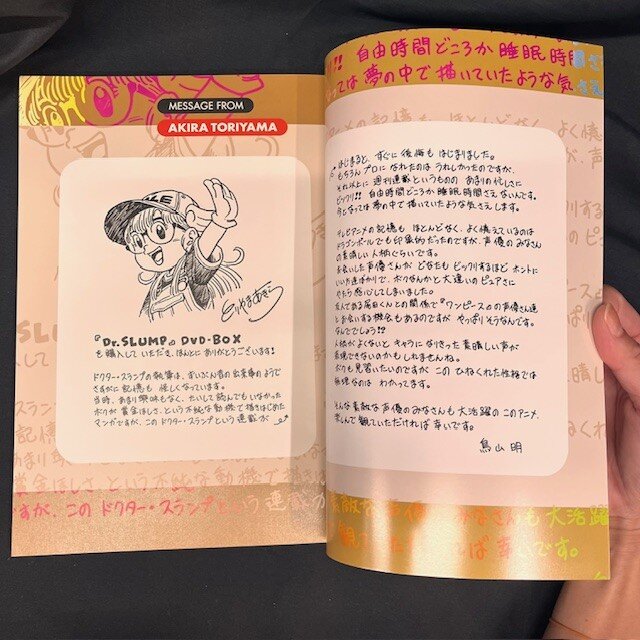 MESSAGE FROM
AKIRA TORIYAMA
『Dr.SLUMP』DVD-BOX
を購入して いただき、ほんとに ありがとうございます!
ドクター・スランプの執筆は、ずいぶん昔の出来事のようで
さすがに記憶も 怪しくなっています。
当時、あまり興味もなく、たいして読んでもいなかった
ボクが 賞金ほしさ、という不純な動機で描きはじめた
マンガですが、この ドクター・スランプ という 連載が
はじまると、すぐに 後悔も はじまりました。
もちろん プロに なれたのは うれしかったのですが、
それ以上に 週刊連載というものの あまりの忙しさに
ビックリ!! 自由時間どころか 睡眠時間さえないんです。
今となっては 夢の中で 描いていたような 気さえします。
テレビアニメの記憶も ほとんどなく、よく憶えているのは
ドラゴンボールでも 印象的だったのですが、声優のみなさん
の 素晴しい 人柄ぐらいです。
お会いした声優さんが どなたも ビックリするほど ホントに
いい方ばかりで、ボクなんかと大違いの ピュアさに
やたら 感心してしまいました。
友人である尾田くんとの関係で『ワンピース』の声優さん達
とお会いする機会もあるのですが やっぱりそうなんです。
なんででしょう!!?
人柄がよくないと キャラに なりきった 素晴しい声が
表現できないのかもしれませんね。
ボクも見習いたいのですが この ひねくれた性格では
無理なのは わかってます。
そんな 素敵な 声優のみなさんも 大活躍の このアニメ、
楽しんで 観ていただければ 幸いです。
鳥山明
自由時間どころか 睡眠時間
ては 夢の中で 描いていたような 気
賞金ほしさ、という不純な動機で描き
ですが、この ドクター・スランプ という 連載
みなさんも 大活躍